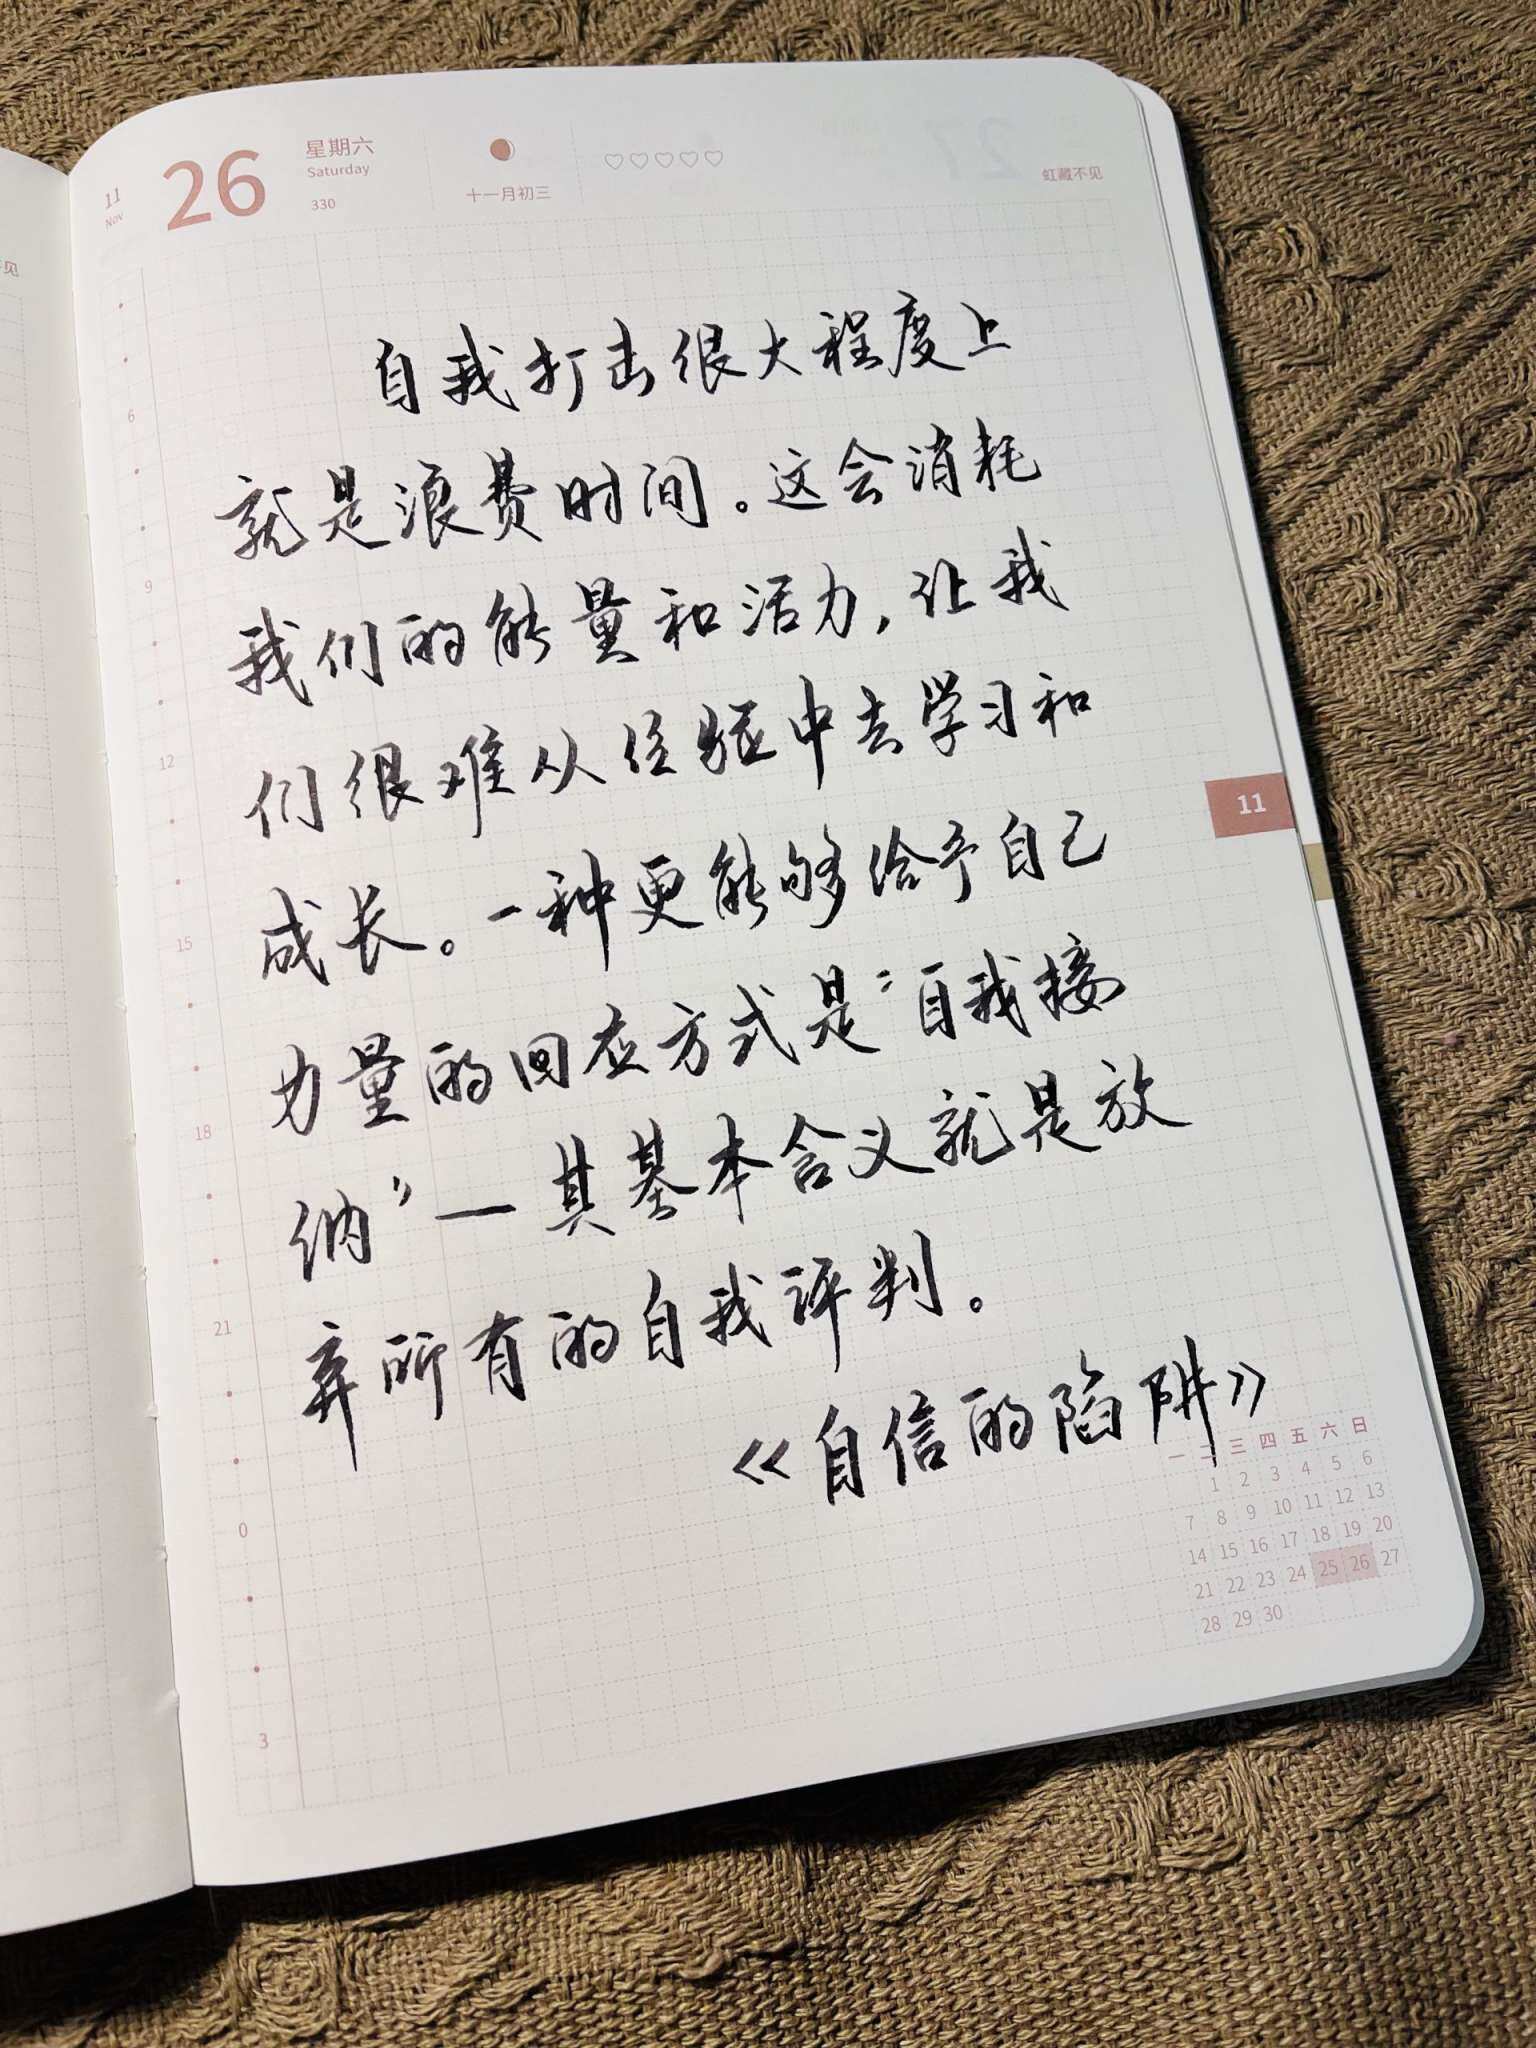 11
Nov
26
星期六
Saturday
330
十一月初三
虹藏不见
自我打击很大程度上
就是浪费时间。这会消耗
我们的能量和活力,让我
们很难从经验中去学习和
成长。一种更能够给予自己
力量的回应方式是“自我接
纳”—其基本含义就是放
弃所有的自我评判。
《自信的陷阱》
6
9
12
15
18
21
0
3
11
一 二 三 四 五 六 日
1 2 3 4 5 6
7 8 9 10 11 12 13
14 15 16 17 18 19 20
21 22 23 24 25 26 27
28 29 30
见
27